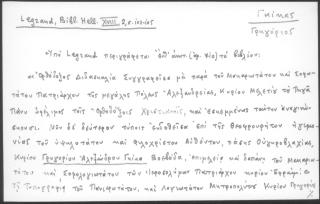 Legrand, Bibl. Hell. XVIII, 2, σ. 102-103
Γκίκας
Γρηγόριος
Ὑπὸ Legrand περιγράφεται δι' ἀριθ. τὸ βιβλίον:
"Ὀρθόδοξος Διδασκαλία Συγγραφεῖσα μὲν παρὰ τοῦ Μακαριωτάτου καὶ Σοφω-
τάτου Πατριάρχου τῆς μεγάλης Πόλεως Ἀλεξανδρείας, Κυρίου Μελετίου τοῦ Πηγᾶ
Πᾶσι τοῖς Ὀρθοδόξοις Χριστιανοῖς, καὶ
Νῦν δὲ δεύτερον τύποις ἐκδοθεῖσα ἐπὶ τῆς Θεοφρουρήτου ἡγεμο-
νίας τοῦ ὑψηλοτάτου καὶ Αὐθέντου, πάσης Οὐγκροβλαχίας,
Κυρίου Γρηγορίου Ἀλεξάνδρου Γκίκα Βοεβόδα, ἐπιμελείᾳ καὶ δαπάνῃ τοῦ Μακαριω-
τάτου καὶ Σοφολογιωτάτου τῶν Ἱεροσολύμων Πατριάρχου κυρίου Ἐφραίμ. Ἐν
τῇ Τυπογραφίᾳ τοῦ Πανιερωτάτου, καὶ Λογιωτάτου Μητροπολίτου Κυρίου Γρηγορίου